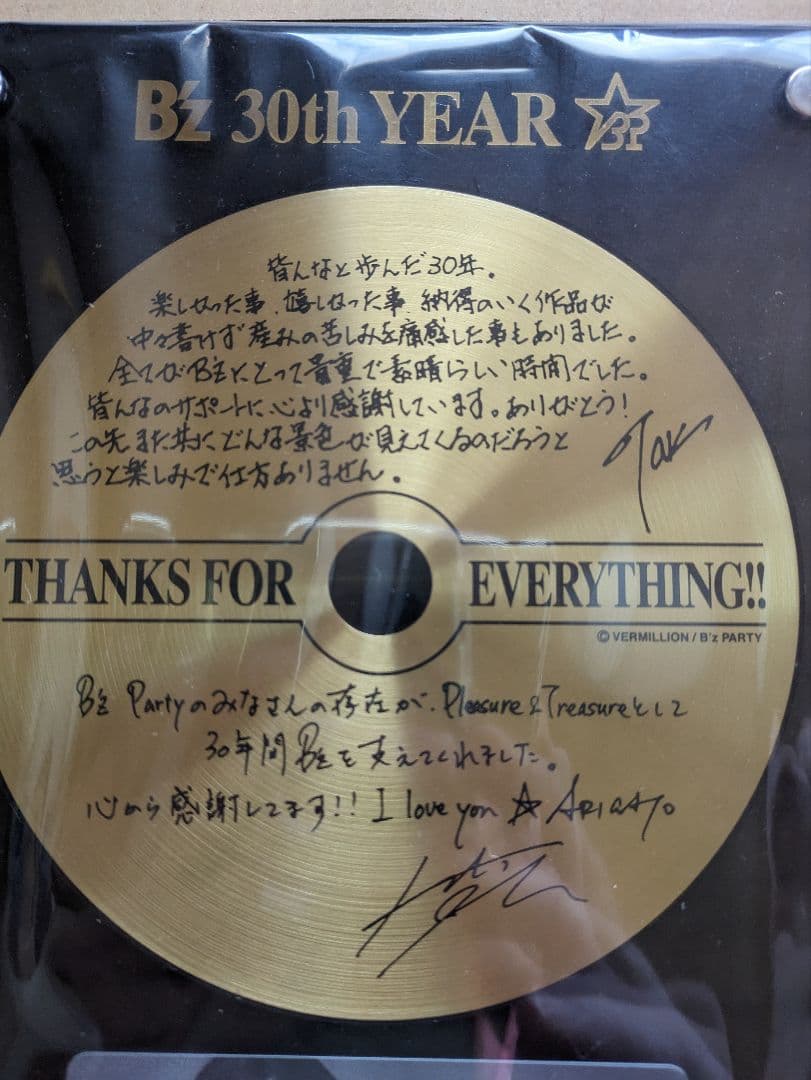 B'z 30th YEAR BP
皆んなと歩んだ30年。
楽しかった事、嬉しかった事 納得のいく作品が
中々書けず産みの苦しみを痛感した事もありました。
全てがB'zにとって貴重で素晴らしい時間でした。
皆んなのサポートに心より感謝しています。ありがとう!
この先また共にどんな景色が見えてくるのだろうと
思うと楽しみで仕方ありません。
Tak
THANKS FOR EVERYTHING!!
© VERMILLION / B'z PARTY
B'z Partyのみなさんの存在が、Pleasure&Treasureとして
30年間B'zを支えてくれました。
心から感謝してます!! I love you ☆ ARIGATO